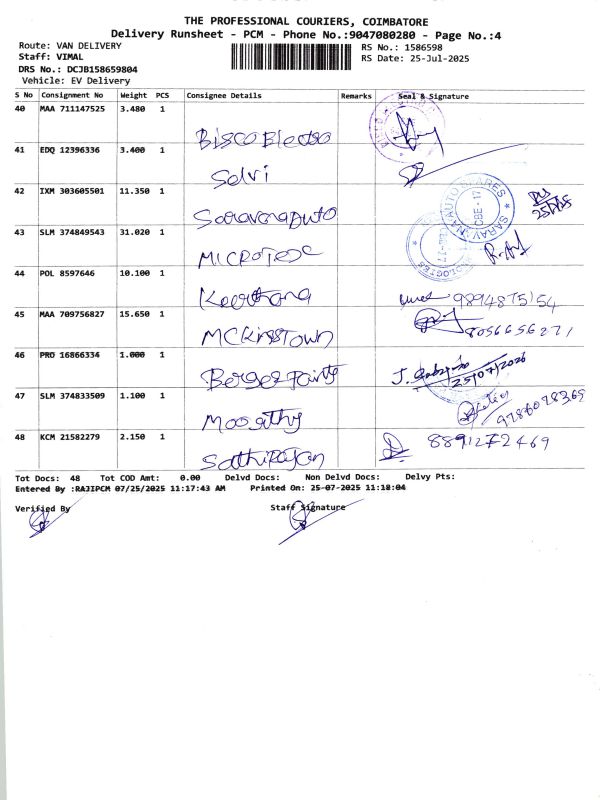 THE PROFESSIONAL COURIERS, COIMBATORE
Delivery Runsheet - PCM - Phone No.:9047080280 - Page No.:4
Route: VAN DELIVERY
RS No.: 1586598
Staff: VIMAL
RS Date: 25-Jul-2025
DRS No.: DCJB158659804
Vehicle: EV Delivery
S No Consignment No Weight PCS Consignee Details Remarks Seal & Signature
40 MAA 711147525 3.480 1
Bisco Electro
41 EDQ 12396336 3.400 1
Selvi
42 IXM 303605501 11.350 1
Saravana Auto
SARAVANA AUTO SPARES
CBE-17
25/7/25
43 SLM 374849543 31.020 1
44 POL 8597646 10.100 1
Keerthana 9894875154
45 MAA 709756827 15.650 1
8056656271
46 PRO 16866334 1.000 1
Berger Paints
47 SLM 374833509 1.100 1
Moorthy
48 KCM 21582279 2.150 1
Sathirajan 8891272469
Tot Docs: 48 Tot COD Amt: 0.00 Delvd Docs: Non Delvd Docs: Delvy Pts:
Entered By :RAJIPCM 07/25/2025 11:17:43 AM Printed On: 25-07-2025 11:18:04
Verified By Staff Signature